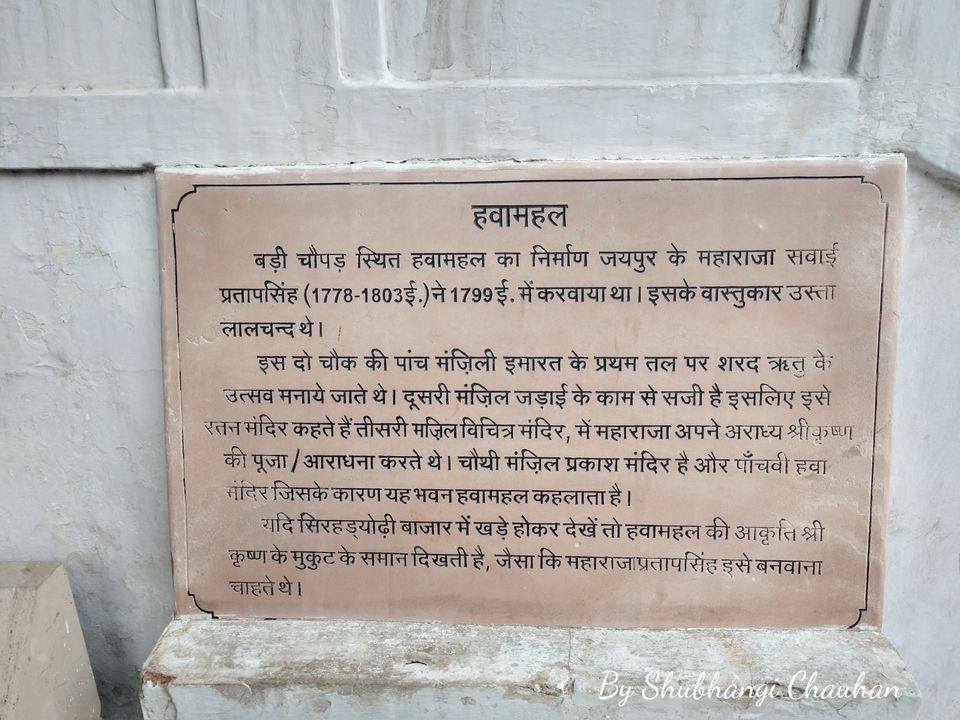 हवामहल
बड़ी चौपड़ स्थित हवामहल का निर्माण जयपुर के महाराजा सवाई
प्रतापसिंह (1778-1803ई.) ने 1799ई. में करवाया था। इसके वास्तुकार उस्ता
लालचन्द थे।
इस दो चौक की पांच मंज़िली इमारत के प्रथम तल पर शरद ऋतु के
उत्सव मनाये जाते थे। दूसरी मंज़िल जड़ाई के काम से सजी है इसलिए इसे
रतन मंदिर कहते हैं तीसरी मज़िल विचित्र मंदिर, में महाराजा अपने अराध्य श्रीकृष्ण
की पूजा / आराधना करते थे। चौथी मंज़िल प्रकाश मंदिर है और पाँचवी हवा
मंदिर जिसके कारण यह भवन हवामहल कहलाता है।
यदि सिरहड्योढ़ी बाजार में खड़े होकर देखें तो हवामहल की आकृति श्री
कृष्ण के मुकुट के समान दिखती है, जैसा कि महाराजा प्रतापसिंह इसे बनवाना
चाहते थे।
By Shubhangi Chauhan